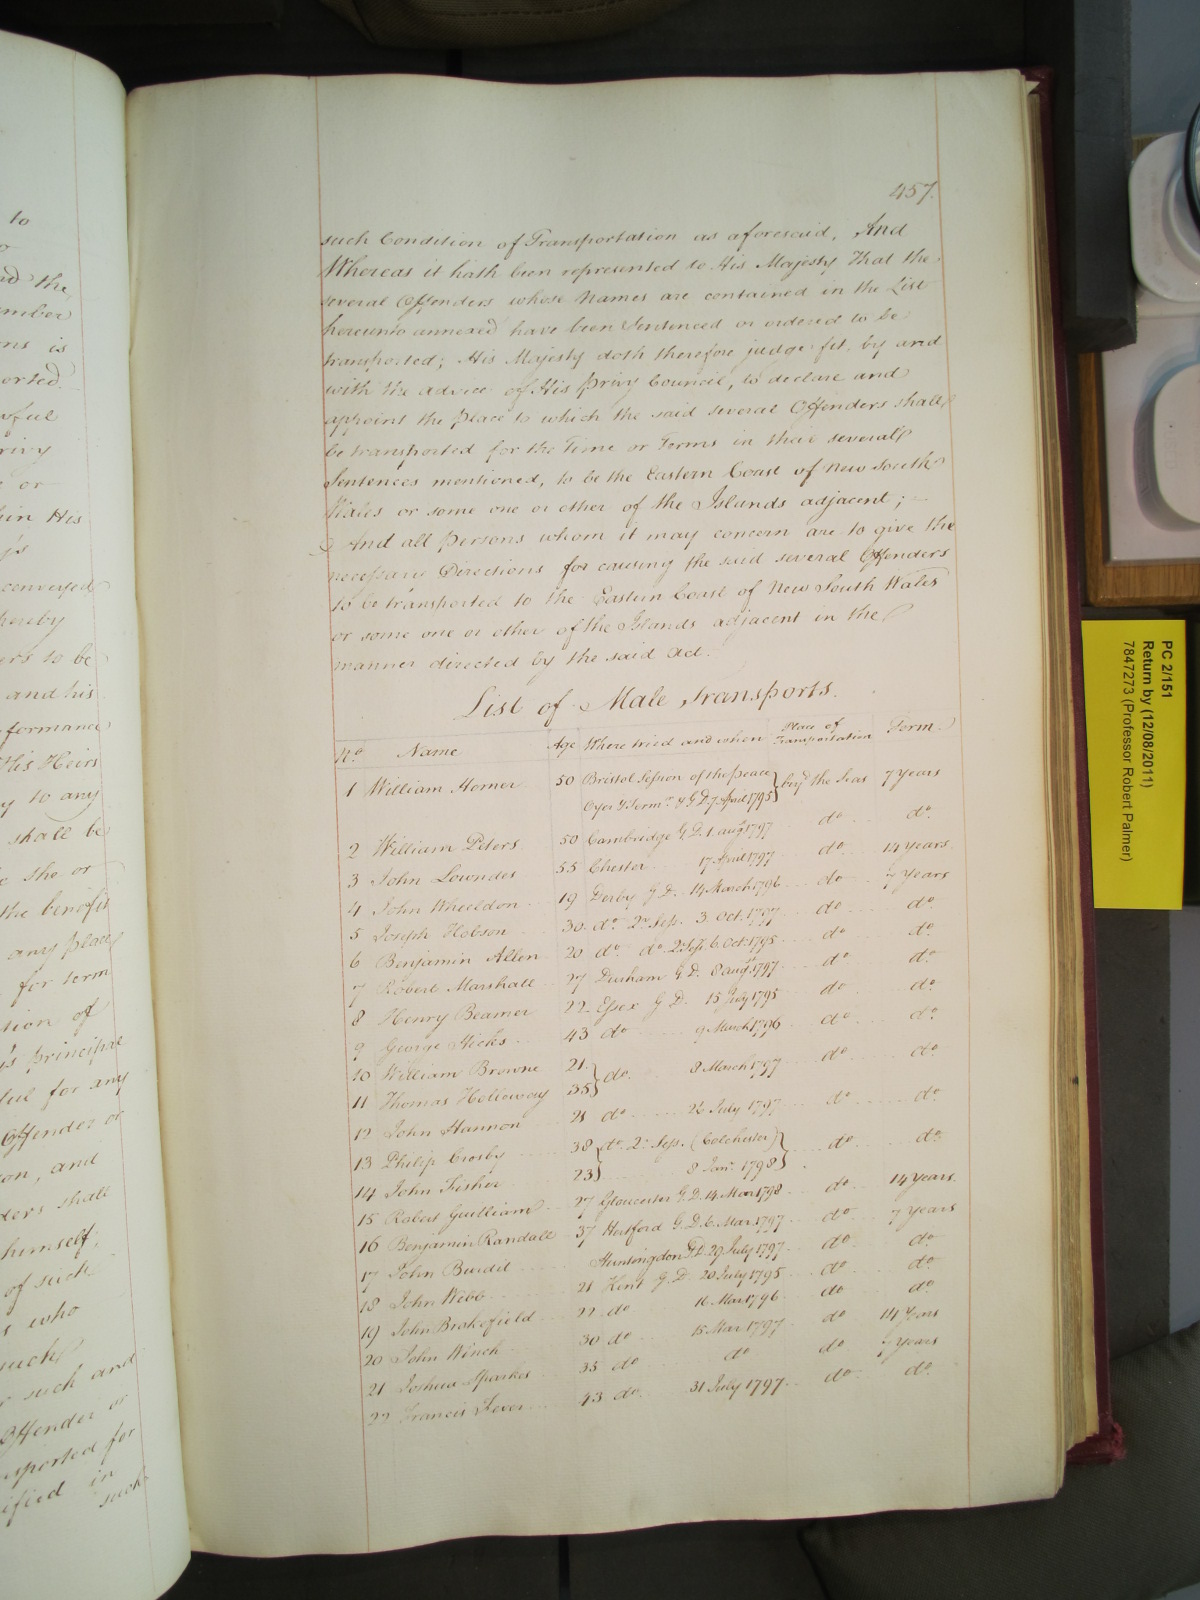 457.
such Condition of Transportation as aforesaid. And
Whereas it hath been represented to His Majesty That the
several Offenders whose Names are contained in the List
hereunto annexed have been Sentenced or ordered to be
transported; His Majesty doth therefore judge fit, by and
with the advice of His Privy Council, to declare and
appoint the Place to which the said several Offenders shall
be transported for the Time or Terms in their several
Sentences mentioned, to be the Eastern Coast of New South
Wales or some one or other of the Islands adjacent; =
And all Persons whom it may concern are to give the
necessary Directions for causing the said several Offenders
to be transported to the Eastern Coast of New South Wales
or some one or other of the Islands adjacent in the
manner directed by the said Act.
List of Male Transports.
No. Name Age Where tried and when Place of Transportation Term.
1 William Homer 50 Bristol Session of the peace beyd. the Seas 7 Years
Oyer & Termr. & G.D. 7 April 1795
2 William Peters 50 Cambridge G.D. 1 augt 1797 do do.
3 John Lowndes 55 Chester 17 April 1797 do 14 Years.
4 John Wheeldon 19 Derby G.D. 14 March 1796 do 7 Years
5 Joseph Hobson 30. do. 2r. Sess. 3. Oct. 1797 do do.
6 Benjamin Allen 20 do. do. 2r. Sess. 6. Oct. 1795 do do.
7 Robert Marshall 27 Durham G.D. 8 augt. 1797 do do.
8 Henry Beamer 22 Essex G.D. 15 July 1795 do do.
9 George Hicks 43 do 9 March 1796 do do.
10 William Browne 21. do. 8 March 1797 do do.
11 Thomas Holloway 35
12 John Hannon 21 do 26 July 1797 do do.
13 Philip Crosby 38 do. 2r. Sess. (Colchester) do do.
14 John Fisher 23 8 Jan. 1798
15 Robert Guilliam 27 Gloucester G.D. 14. Mar 1798 do 14 Years.
16 Benjamin Randall 37 Hertford G.D. 6. Mar. 1797 do 7 Years
17 John Burdit Huntingdon GD. 29 July 1797 do do.
18 John Webb 21 Kent G.D. 20 July 1795 do do.
19 John Brakefield 22 do 16 Mar. 1796 do do.
20 John Winch 30 do 15 Mar. 1797 do 14 Years
21 Joshua Sparkes 35 do do. do 7 Years
22 Francis Fever 43 do. 31 July 1797. do do.
PC 2/151
Return by (12/08/2011)
7847273 (Professor Robert Palmer)